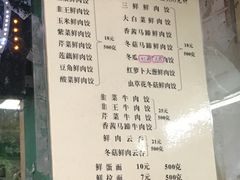 三鲜鲜肉饺
韭王鲜肉饺
大白菜鲜肉饺
玉米鲜肉饺
香菇马蹄鲜肉饺
紫菜鲜肉饺
18元
500克
冬菇马蹄鲜肉饺
18元
500克
芹菜鲜肉饺
冬瓜
肉饺
莲藕鲜肉饺
红萝卜大葱鲜肉饺
豆角鲜肉饺
虫草花冬菇鲜肉饺
酸菜鲜肉饺
韭菜牛肉饺
韭王牛肉饺
芹菜牛肉饺
香菇马蹄牛肉饺
500克
鲜肉云吞
冬菇鲜肉云吞
500克
鲜蛋面 10元 500克
鲜拉面 7元 500克